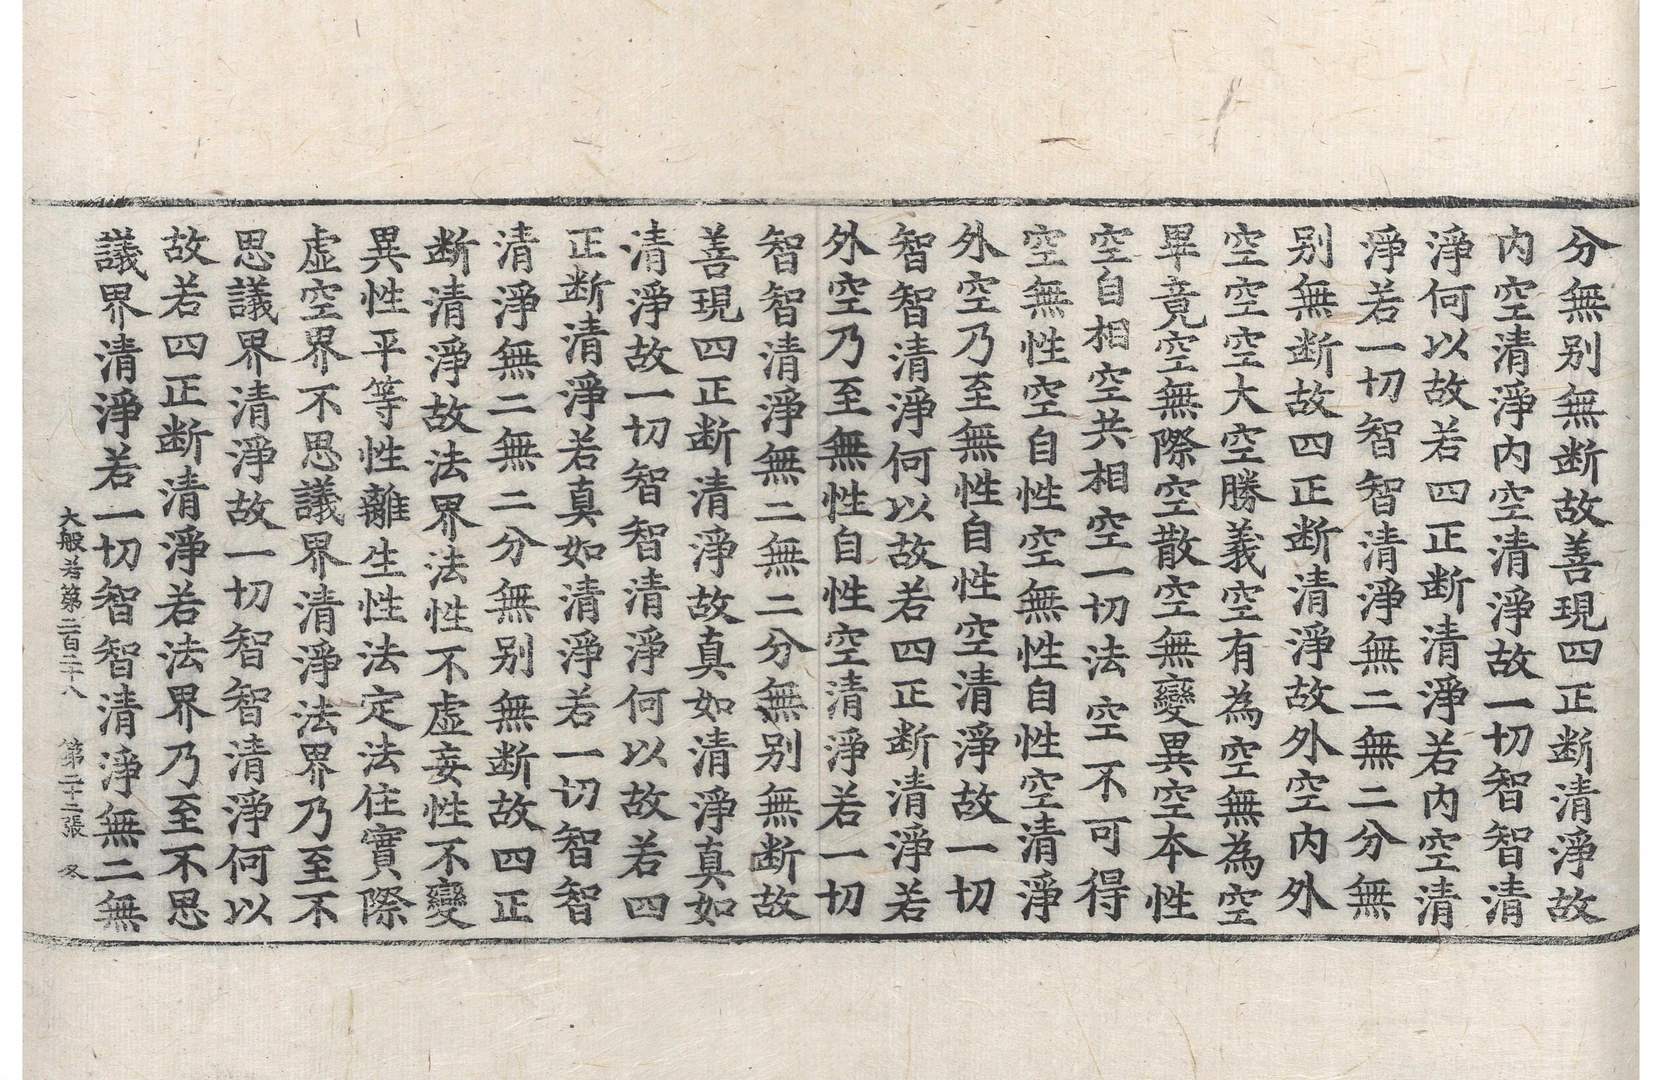 分無别無断故善現四正断清淨故
内空清淨内空清淨故一切智智清
淨何以故若四正断清淨若内空清
淨若一切智智清淨無二無二分無
别無断故四正断清淨故外空内外
空空空大空勝義空有為空無為空
畢竟空無際空散空無變異空本性
空自相空共相空一切法空不可得
空無性空自性空無性自性空清淨
外空乃至無性自性空清淨故一切
智智清淨何以故若四正断清淨若
外空乃至無性自性空清淨若一切
智智清淨無二無二分無别無断故
善現四正断清淨故真如清淨真如
清淨故一切智智清淨何以故若四
正断清淨若真如清淨若一切智智
清淨無二無二分無别無断故四正
断清淨故法界法性不虛妄性不變
異性平等性離生性法定法住實際
虛空界不思議界清淨法界乃至不
思議界清淨故一切智智清淨何以
故若四正断清淨若法界乃至不思
議界清淨若一切智智清淨無二無
大般若第二百二十八 第二十二張 冬